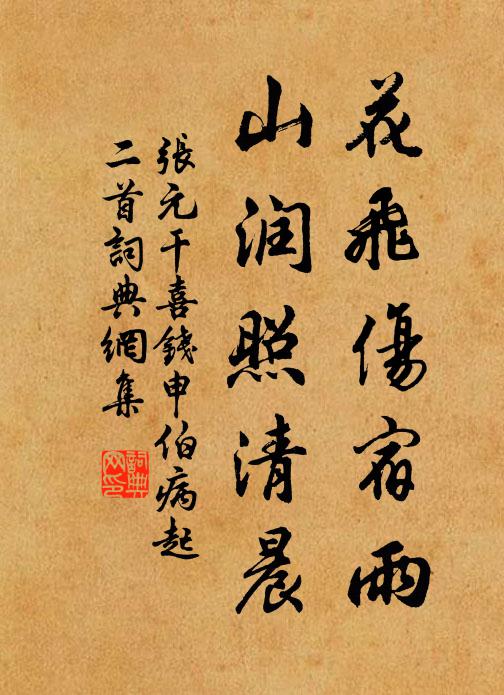 花飛傷宿雨
山润照清晨
張元干喜錢申伯病起
二首詞典網集
詞典
网印